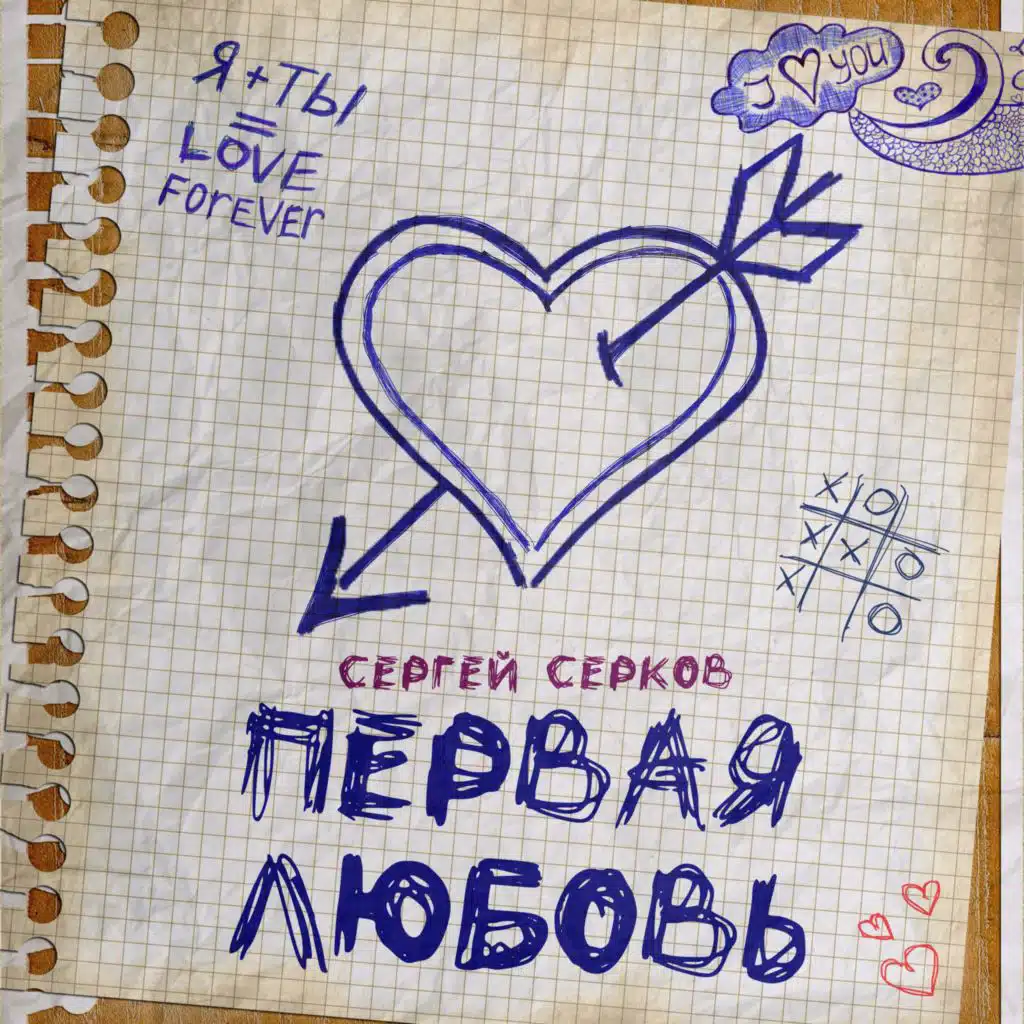 Я + ТЫ
=
LOVE
FOREVER
I ♡ YOU
X O
X X O
X O
СЕРГЕЙ СЕРКОВ
ПЕРВАЯ
ЛЮБОВЬ